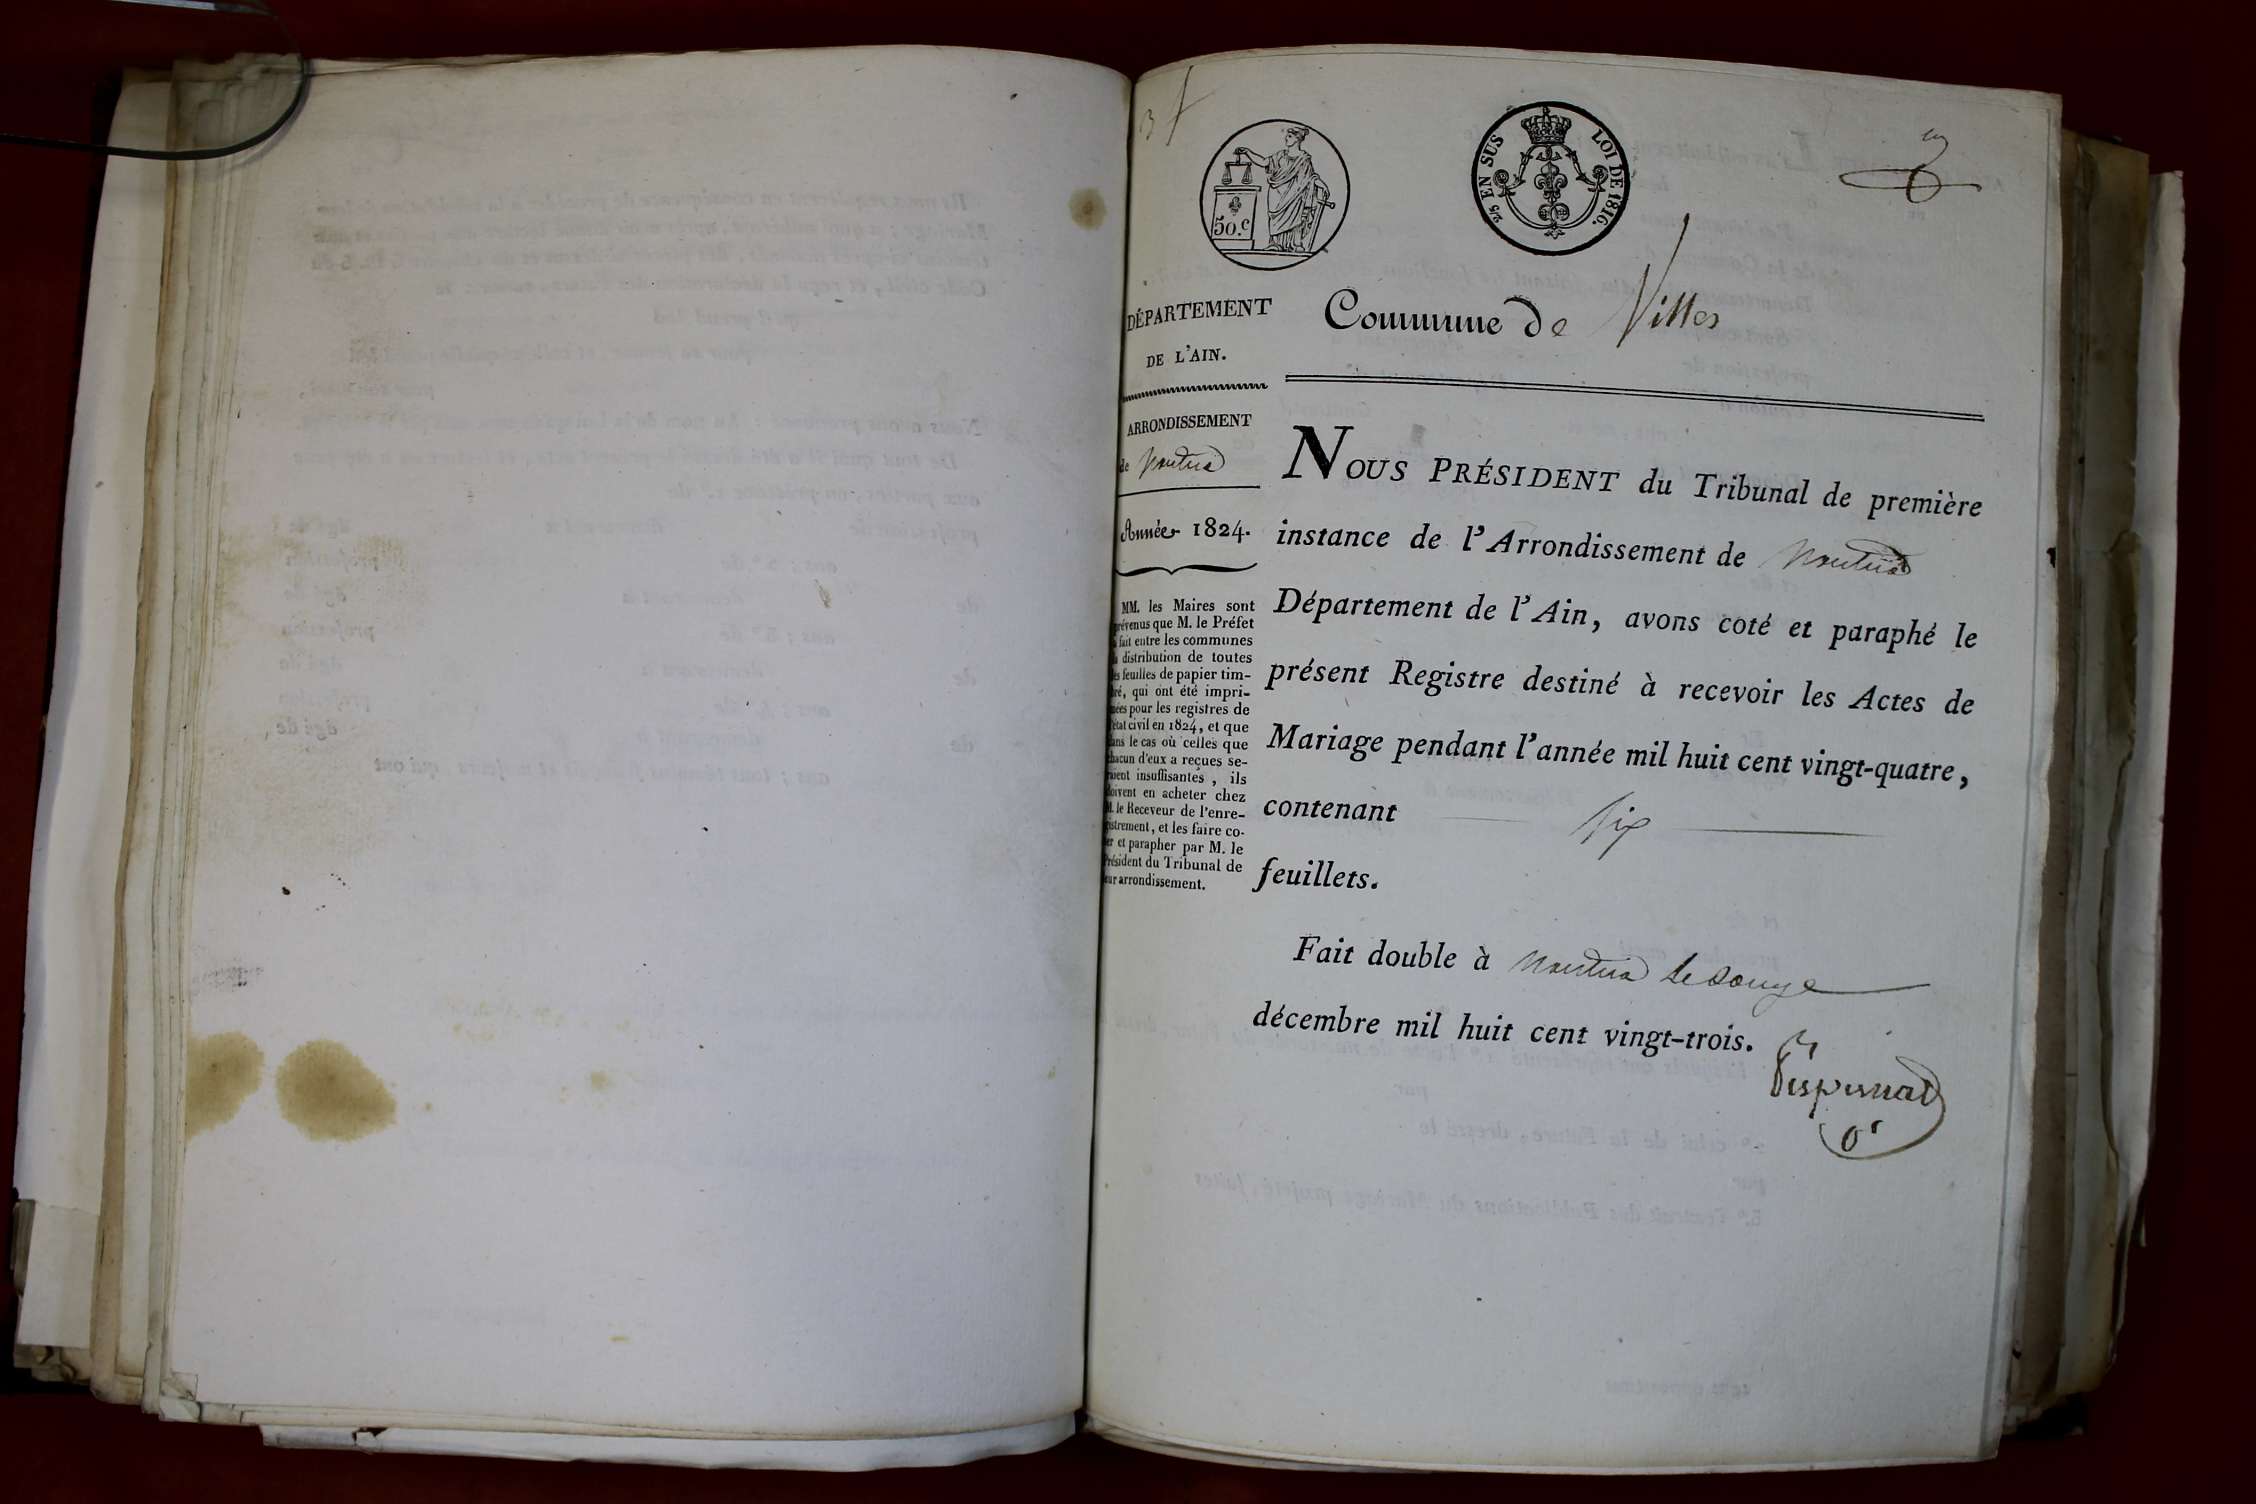 3 f
50.c
2/5 EN SUS
LOI DE 1816.
DÉPARTEMENT
DE L'AIN.
ARRONDISSEMENT
de Nantua
Année 1824.
MM. les Maires sont
prévenus que M. le Préfet
a fait entre les communes
la distribution de toutes
les feuilles de papier tim-
bré, qui ont été impri-
mées pour les registres de
l'état civil en 1824, et que
dans le cas où celles que
chacun d'eux a reçues se-
raient insuffisantes, ils
doivent en acheter chez
M. le Receveur de l'enre-
gistrement, et les faire co-
ter et parapher par M. le
Président du Tribunal de
leur arrondissement.
Commune de Villes
NOUS PRÉSIDENT du Tribunal de première
instance de l'Arrondissement de Nantua
Département de l'Ain, avons coté et paraphé le
présent Registre destiné à recevoir les Actes de
Mariage pendant l'année mil huit cent vingt-quatre,
contenant six
feuillets.
Fait double à Nantua le douze
décembre mil huit cent vingt-trois.